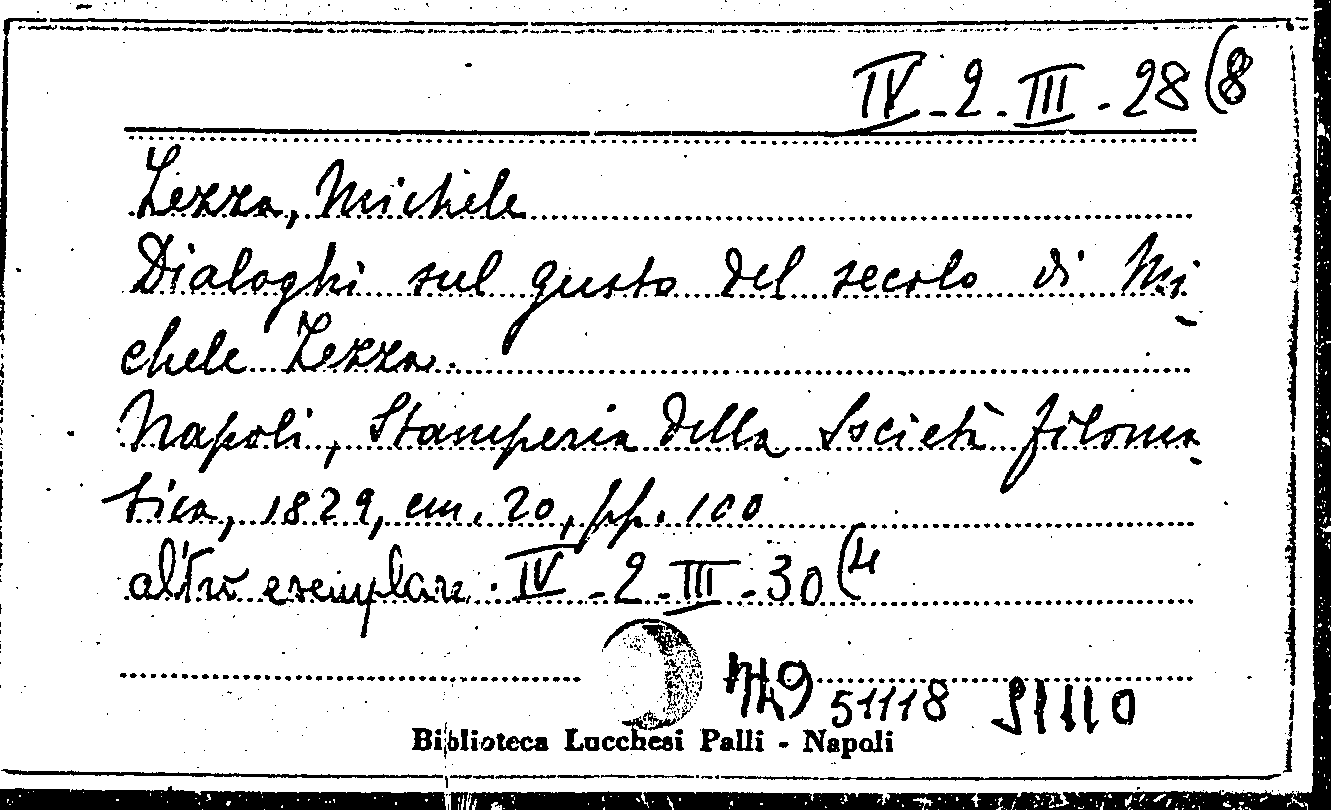 IV-2-III-28(8
Zezza, Michele
Dialoghi sul gusto del secolo di Mi-
chele Zezza.
Napoli, Stamperia della Società filoma-
tica, 1829, cm. 20, pp. 100
altro esemplare. IV-2-III-30(4
51118 51110
Biblioteca Lucchesi Palli - Napoli